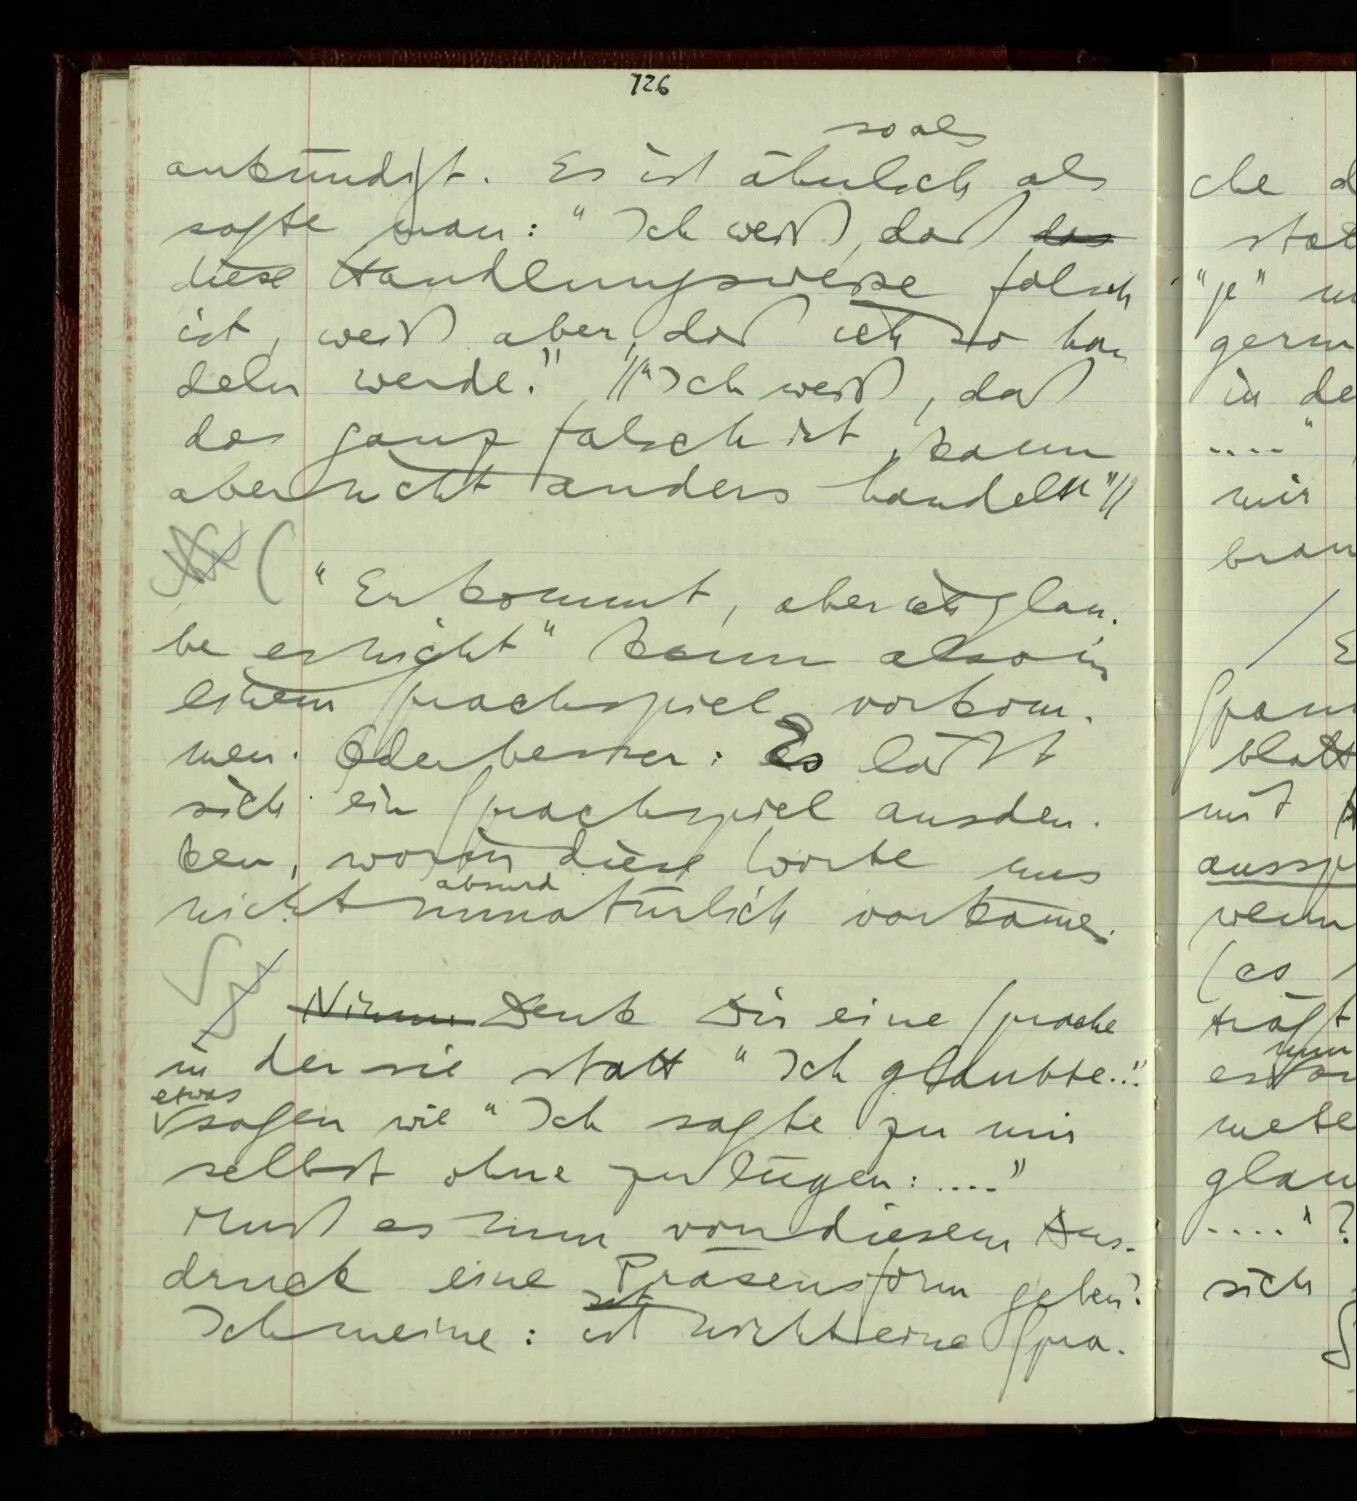 126
so als
ankündigt. Es ist ähnlich als
sagte man: "Ich weiß, daß das
diese Handlungsweise falsch
ist, weiß aber, daß ich so han
deln werde." //"Ich weiß, daß
das ganz falsch ist, kann
aber nicht anders handeln"//
( "Er kommt, aber ich glau-
be es nicht" kann also in
einem Sprachspiel vorkom-
men. Oder besser: Es läßt
sich ein Sprachspiel ausden-
ken, worin diese Worte uns
absurd
nicht unnatürlich vorkämen.
Nimm Denk Dir eine Sprache
in der sie statt "Ich glaubte..."
etwas
sagen wie "Ich sagte zu mir
selbst ohne zu lügen: ...."
Muß es nun von diesem Aus-
druck eine Präsensform geben?
Ich meine: ist nicht eine Spra-
che
"je"
in de
...."
mir
mit
wenn
(es
nun
sich